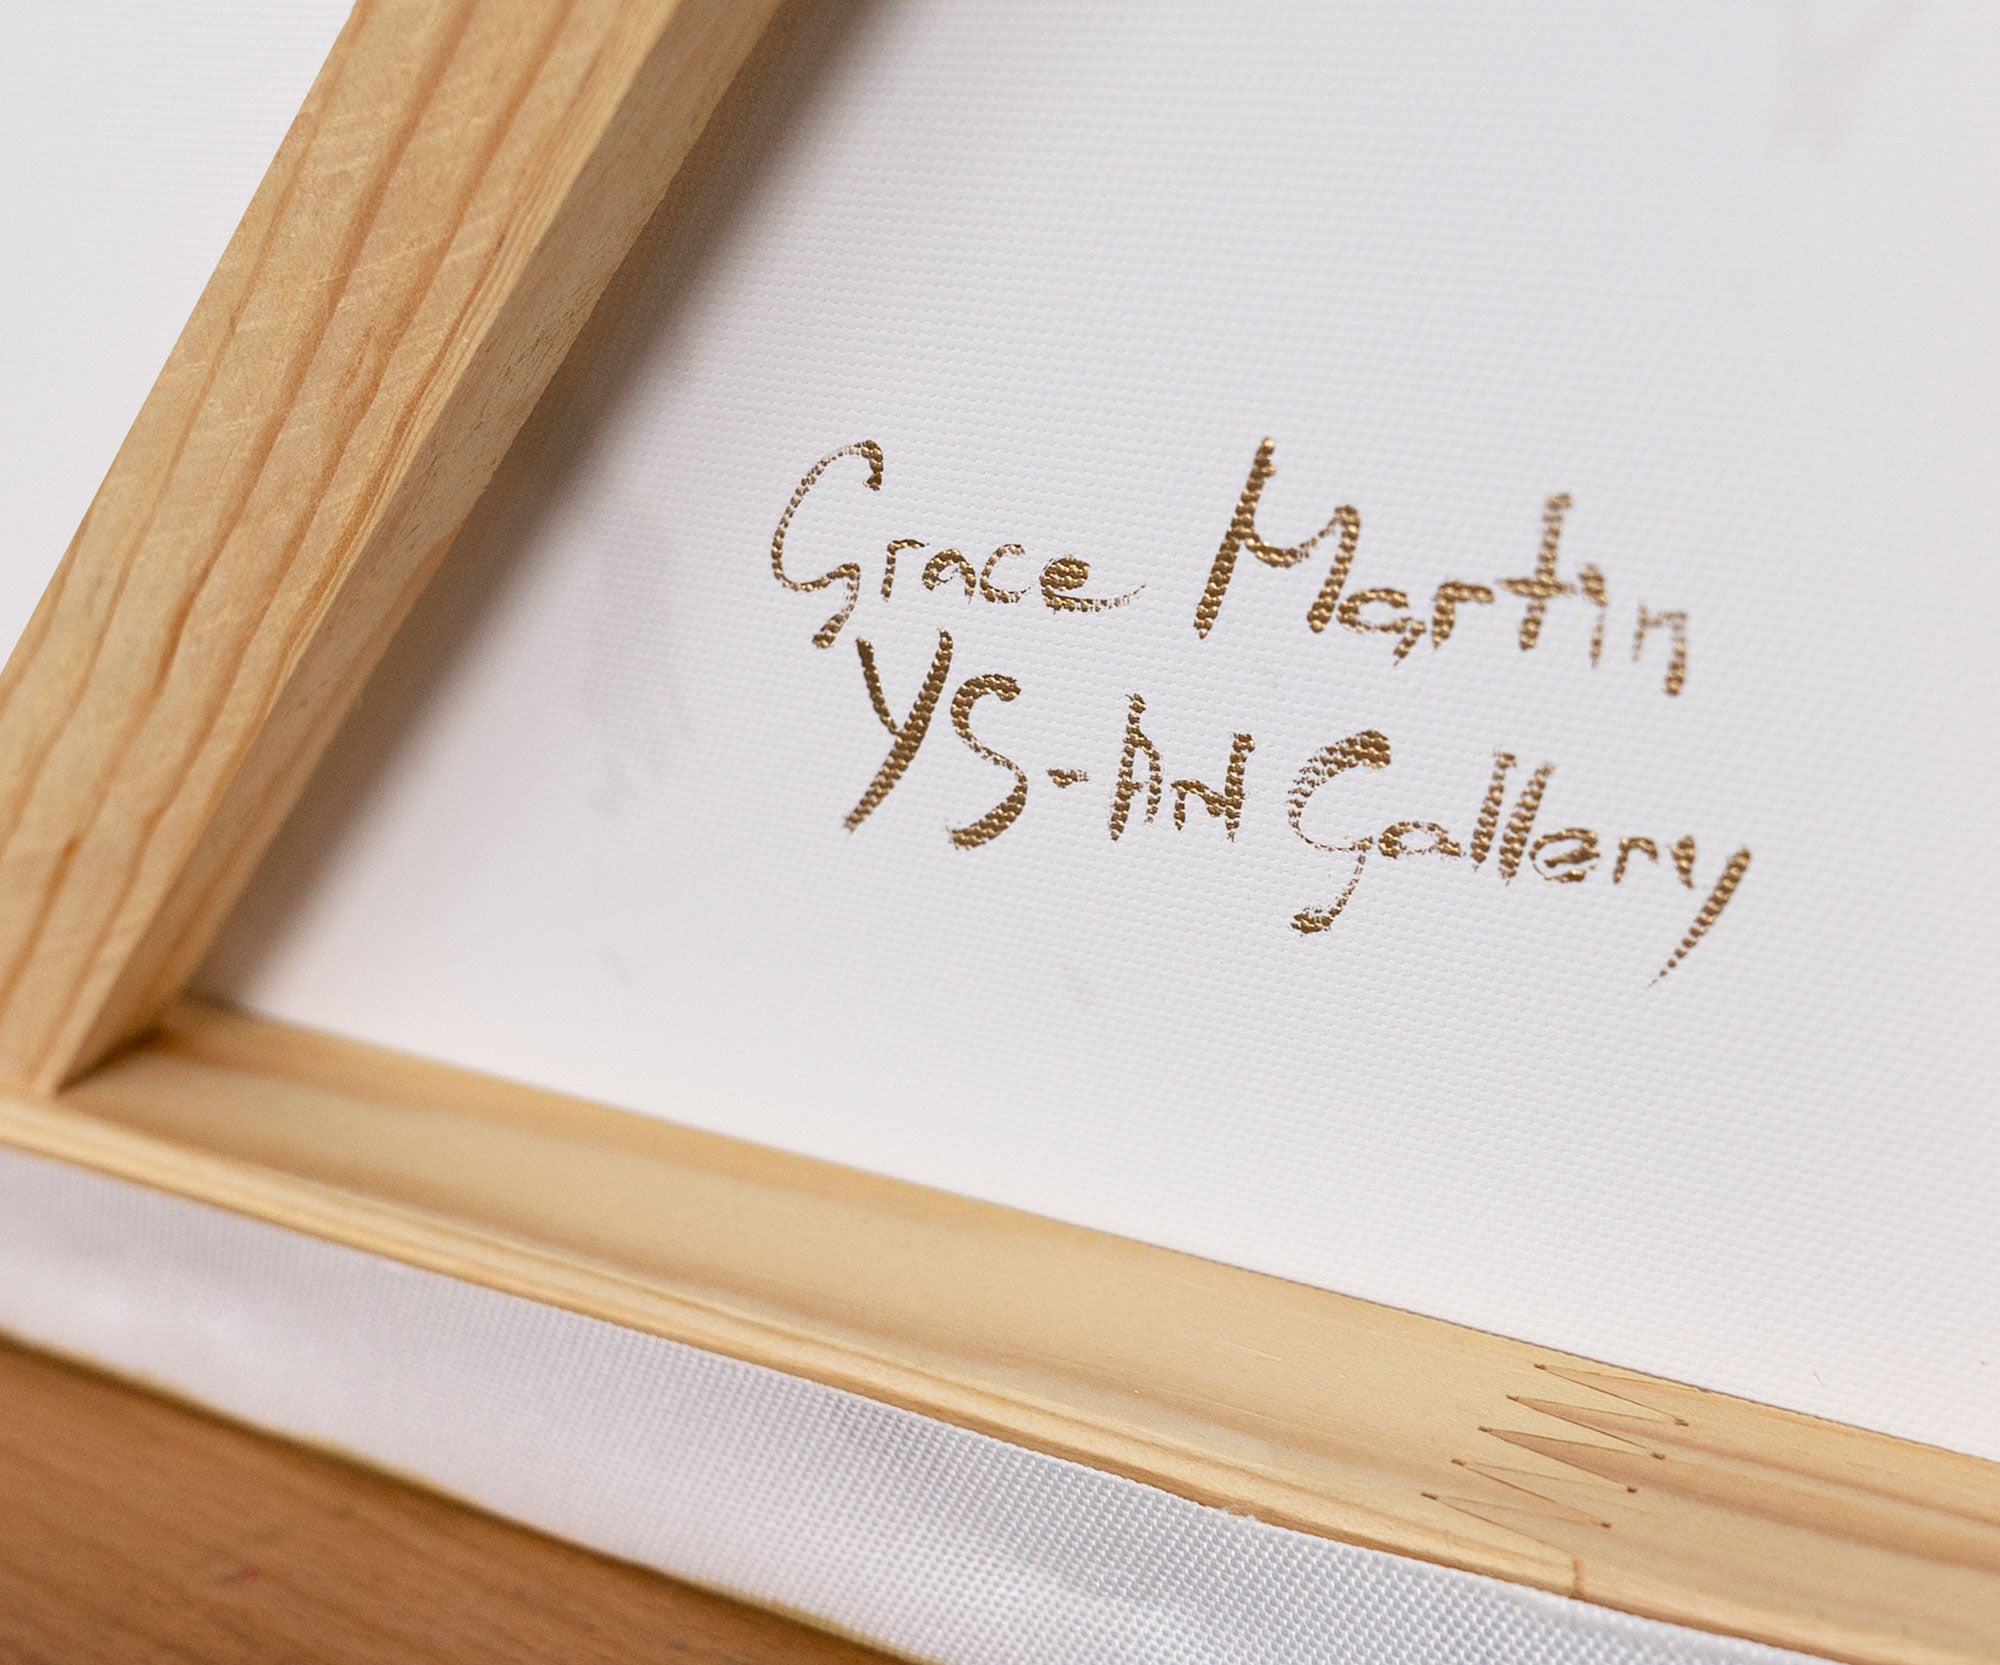 Grace Martin
YS-AN Gallery